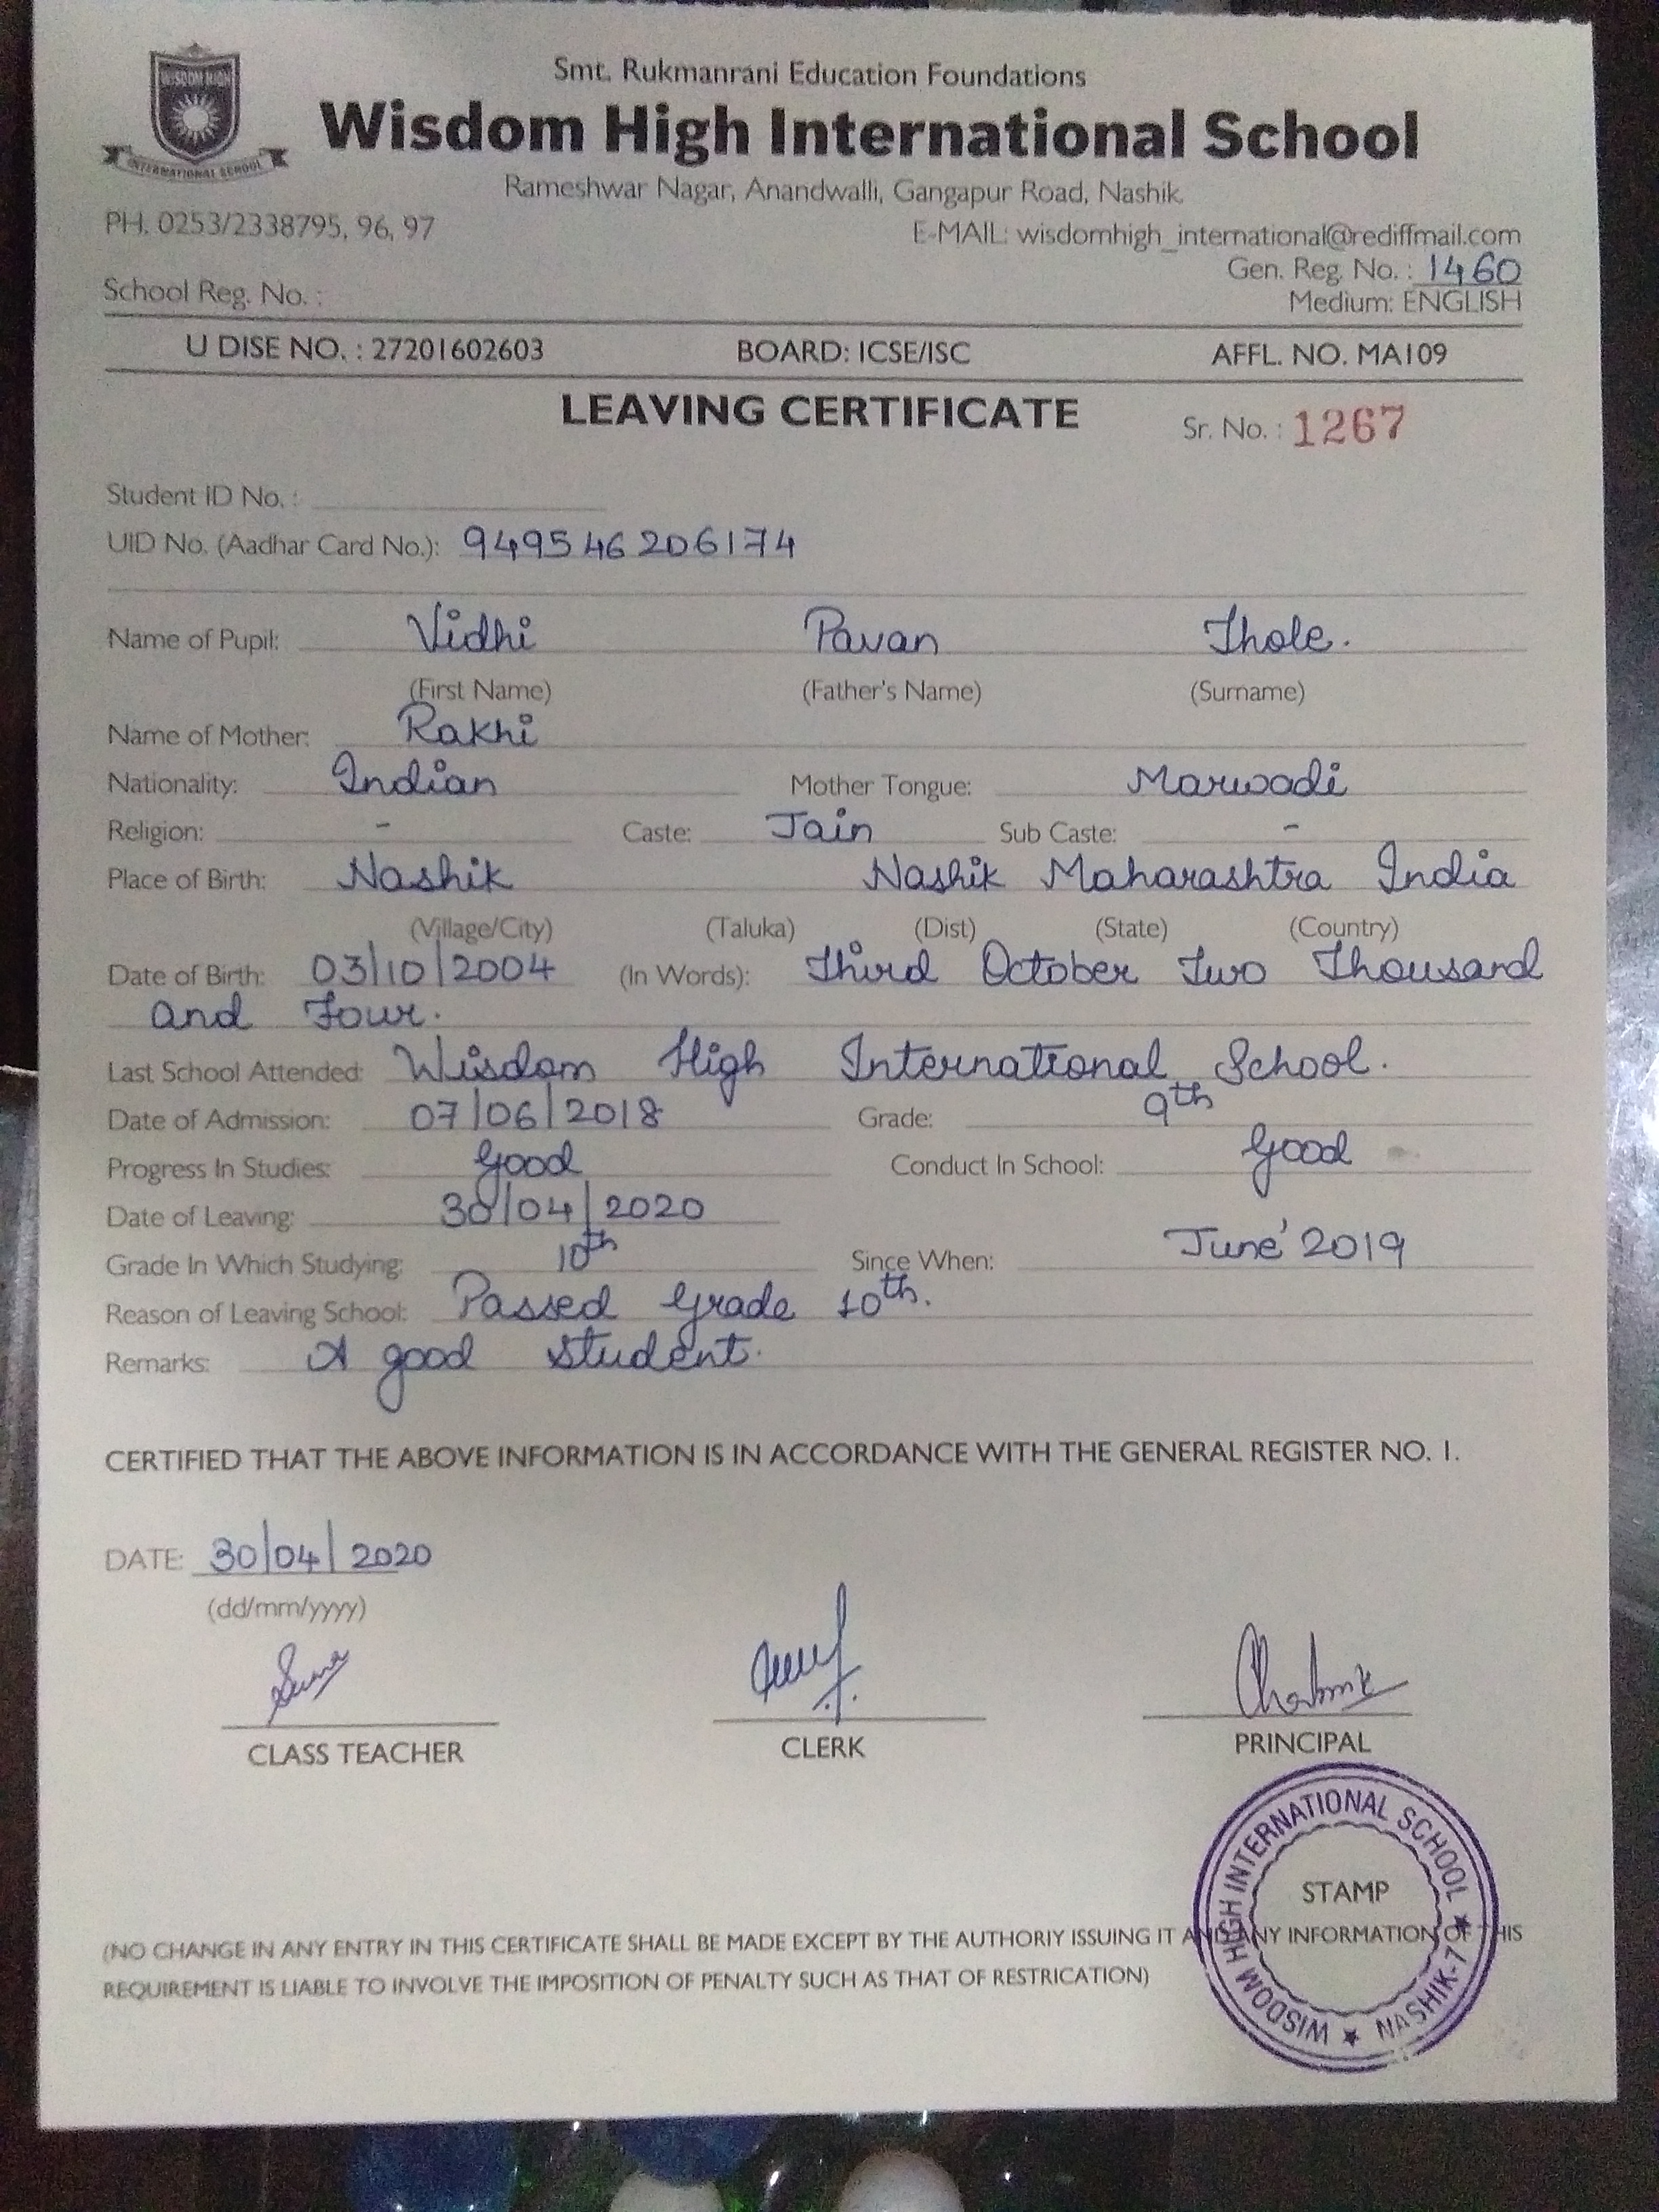 WISDOM HIGH
INTERNATIONAL SCHOOL
Smt. Rukmanrani Education Foundations
Wisdom High International School
Rameshwar Nagar, Anandwalli, Gangapur Road, Nashik.
PH. 0253/2338795, 96, 97 E-MAIL: wisdomhigh_international@rediffmail.com
Gen. Reg. No. : 1460
School Reg. No. : Medium: ENGLISH
U DISE NO. : 27201602603 BOARD: ICSE/ISC AFFL. NO. MA109
LEAVING CERTIFICATE Sr. No. : 1267
Student ID No. :
UID No. (Aadhar Card No.): 949546206174
Name of Pupil: Vidhi Pavan Thole.
(First Name) (Father's Name) (Surname)
Name of Mother: Rakhi
Nationality: Indian Mother Tongue: Marwadi
Religion: - Caste: Jain Sub Caste: -
Place of Birth: Nashik Nashik Maharashtra India
(Village/City) (Taluka) (Dist) (State) (Country)
Date of Birth: 03/10/2004 (In Words): Third October Two Thousand
and Four.
Last School Attended: Wisdom High International School.
Date of Admission: 07/06/2018 Grade: 9th
Progress In Studies: Good Conduct In School: Good
Date of Leaving: 30/04/2020
Grade In Which Studying: 10th Since When: June' 2019
Reason of Leaving School: Passed Grade 10th.
Remarks: A good student.
CERTIFIED THAT THE ABOVE INFORMATION IS IN ACCORDANCE WITH THE GENERAL REGISTER NO. 1.
DATE: 30/04/2020
(dd/mm/yyyy)
CLASS TEACHER CLERK PRINCIPAL
WISDOM HIGH INTERNATIONAL SCHOOL ★ NASHIK-7 ★
STAMP
(NO CHANGE IN ANY ENTRY IN THIS CERTIFICATE SHALL BE MADE EXCEPT BY THE AUTHORIY ISSUING IT AND ANY INFORMATION OF THIS
REQUIREMENT IS LIABLE TO INVOLVE THE IMPOSITION OF PENALTY SUCH AS THAT OF RESTRICATION)